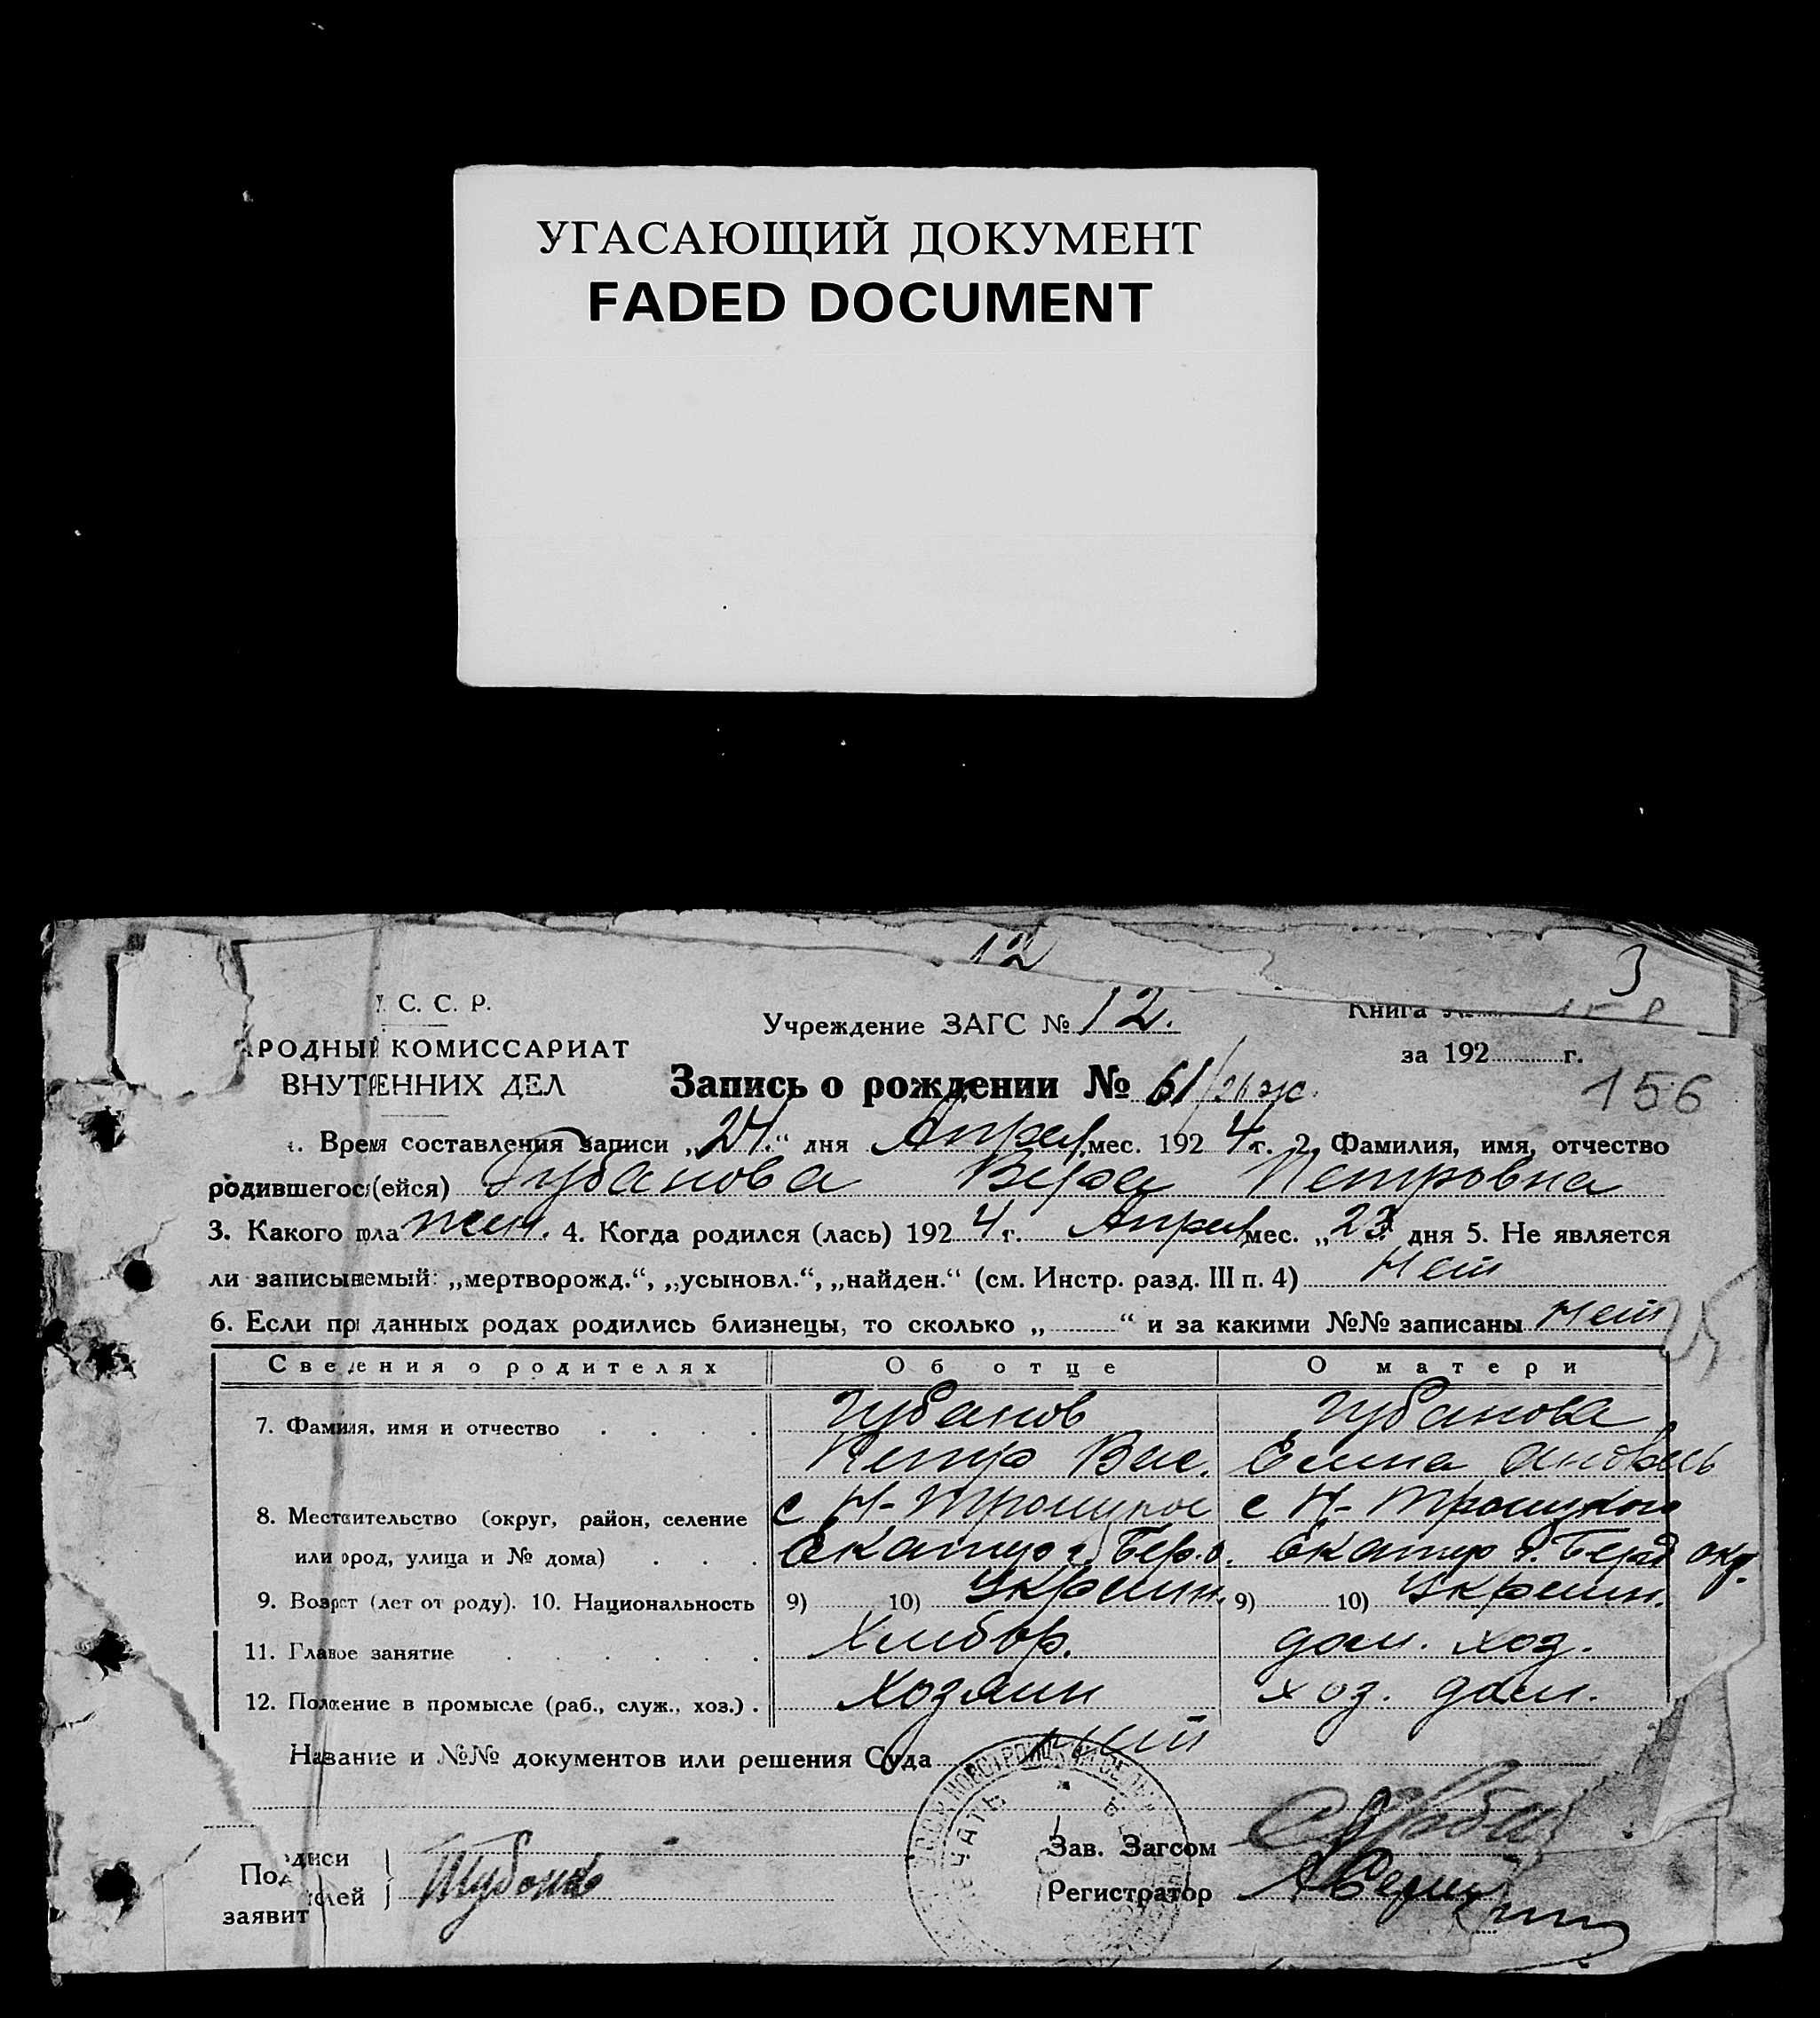 УГАСАЮЩИЙ ДОКУМЕНТ
FADED DOCUMENT
12
3
С. С. Р.
Учреждение ЗАГС № 12.
Книга №
РОДНЫЙ КОМИССАРИАТ
за 192 г.
ВНУТРЕННИХ ДЕЛ
Запись о рождении № 61/
156
Время составления записи „24.“ дня Апрел мес. 1924 г. 2. Фамилия, имя, отчество
родившегося(ейся) Губанова Вера Петровна
3. Какого пола жен. 4. Когда родился (лась) 1924 г. Апрел мес. „23 дня 5. Не является
ли записываемый: „мертворожд.“, „усыновл.“, „найден.“ (см. Инстр. разд. III п. 4) Нет
6. Если при данных родах родились близнецы, то сколько „ “ и за какими №№ записаны Нет
Сведения о родителях Об отце О матери
7. Фамилия, имя и отчество Губанов Губанова
Петр Вас. Елена
8. Местожительство (округ, район, селение с Н-Троицкое с Н-Троицкого
или город, улица и № дома) Екатер г. Бер. о. Екатер г. Берд окр.
9. Возраст (лет от роду). 10. Национальность 9) 10) Украин. 9) 10) Украин.
11. Главное занятие Хлебор. дом. хоз.
12. Положение в промысле (раб., служ., хоз.) Хозяин хоз. дом.
Название и №№ документов или решения Суда нет
Подписи
Зав. Загсом
заявителей Губанов
Регистратор